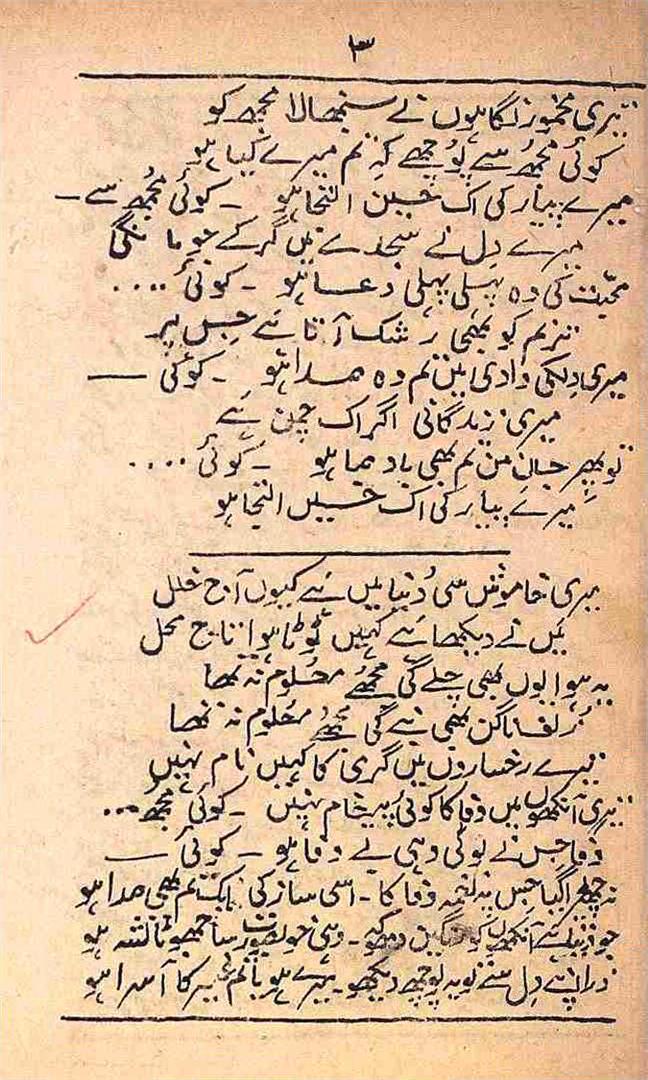 ۳
تیری مخمور نگاہوں نے سنبھالا مجھ کو
کوئی مجھ سے پوچھے کہ تم میرے کیا ہو
میرے پیار کی اک حسین التجا ہو - کوئی مجھ سے —
میرے دل نے سجدے میں گر کے جو مانگی
محبت کی وہ پہلی پہلی دعا ہو - کوئی ....
ترنم کو بھی رشک آتا ہے جس پر
میری دل کی وادی میں تم وہ صدا ہو - کوئی —
میری زندگانی اگر اک چمن ہے
تو پھر جان من تم بھی باد صبا ہو - کوئی ....
میرے پیار کی اک حسیں التجا ہو
میری خاموش سی دنیا میں ہے کیوں آج خلل
میں نے دیکھا ہے کہیں ٹوٹا ہوا تاج محل
یہ ہوا یوں بھی چلے گی مجھے معلوم نہ تھا
زلف ناگن بھی بنے گی مجھے معلوم نہ تھا
تیرے رخساروں میں گرمی کا کہیں نام نہیں
تیری آنکھوں میں وفا کا کوئی پیغام نہیں - کوئی مجھ ...
وفا جس نے لوٹی وہی بے وفا ہو - کوئی —
نہ چھیڑا گیا جس پہ نغمہ وفا کا - اسی ساز کی ایک تم بھی صدا ہو
جو دنیا سے آنکھوں کو رنگین دھوکہ - وہی خوبصورت سا جھوٹا نشہ ہو
ذرا اپنے دل سے تو یہ پوچھ دیکھو - میرے ہو یا تم غیر کا آسرا ہو